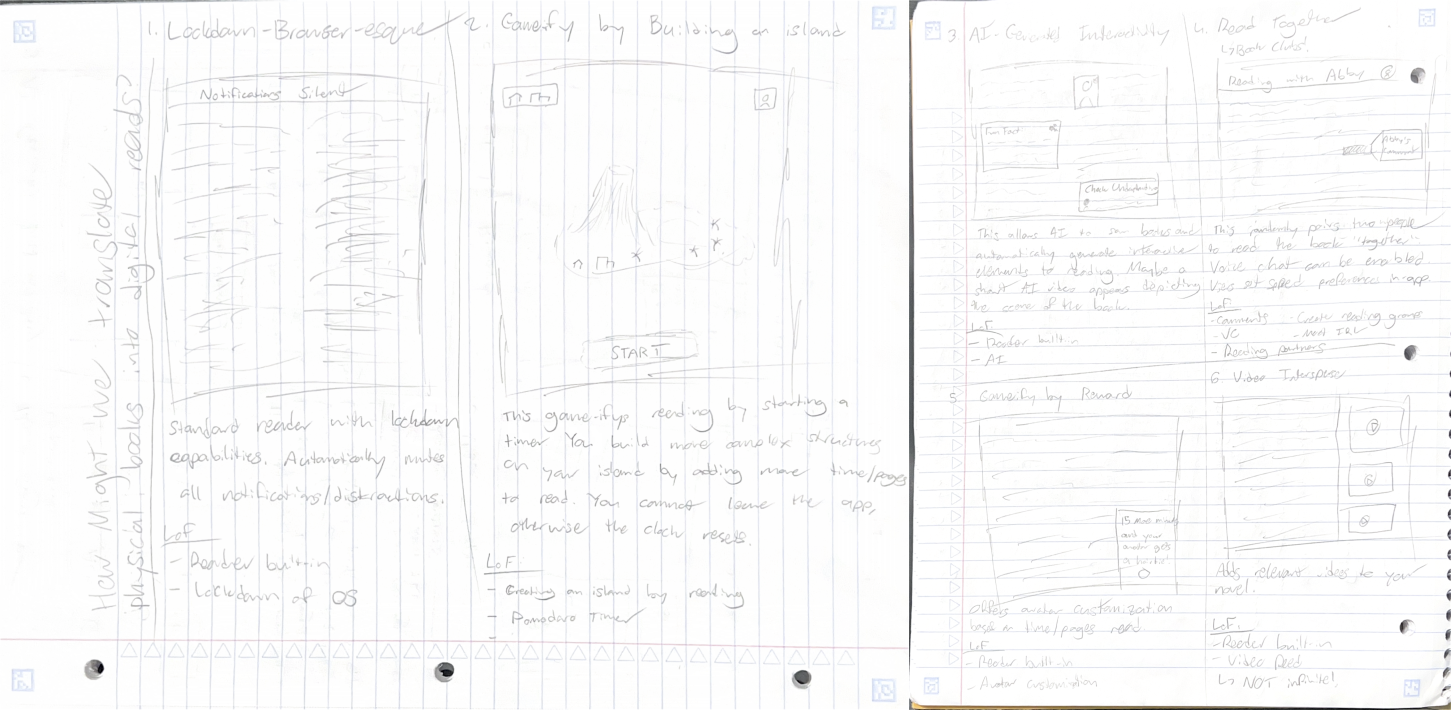 How Might we translate
physical books into digital reads?
1. Lockdown-Browser-esque
Notifications Silent
Standard reader with lockdown
capabilities. Automatically mutes
all notifications/distractions.
LoF
- Reader built-in
- Lockdown of OS
2. Gameify by Building an island
START
This game-ifys reading by starting a
timer You build more complex structures
on your island by adding more time/pages
to read. You cannot leave the app,
otherwise the clock resets.
LoF:
- Creating an island by reading
- Pomodoro Timer
-
3 AI-Generated Interactivity
Fun Fact
Check Understanding
This allows AI to scan books and
automatically generate interactive
elements to reading. Maybe a
short AI video appears depicting
the scene of the book.
LoF
- Reader built-in
- AI
4. Read Together
↳ Book Clubs!
Reading with Abby
Abby's
Comment
This randomly pairs two people
to read the book "together"
Voice chat can be enabled
Vies set speed preference in-app
LoF
- Comments - Create reading groups
- VC - Meet IRL
- Reading partners
5 Gameify by Reward
15 more minutes
and your
avatar gets
a
offers avatar customization
based on time/pages read
LoF
- Reader built-in
- Avatar customization
6 Video Intersperse
Adds relevant videos to your
novel.
LoF:
- Reader built-in
- Video Feed
↳ NOT infinite!